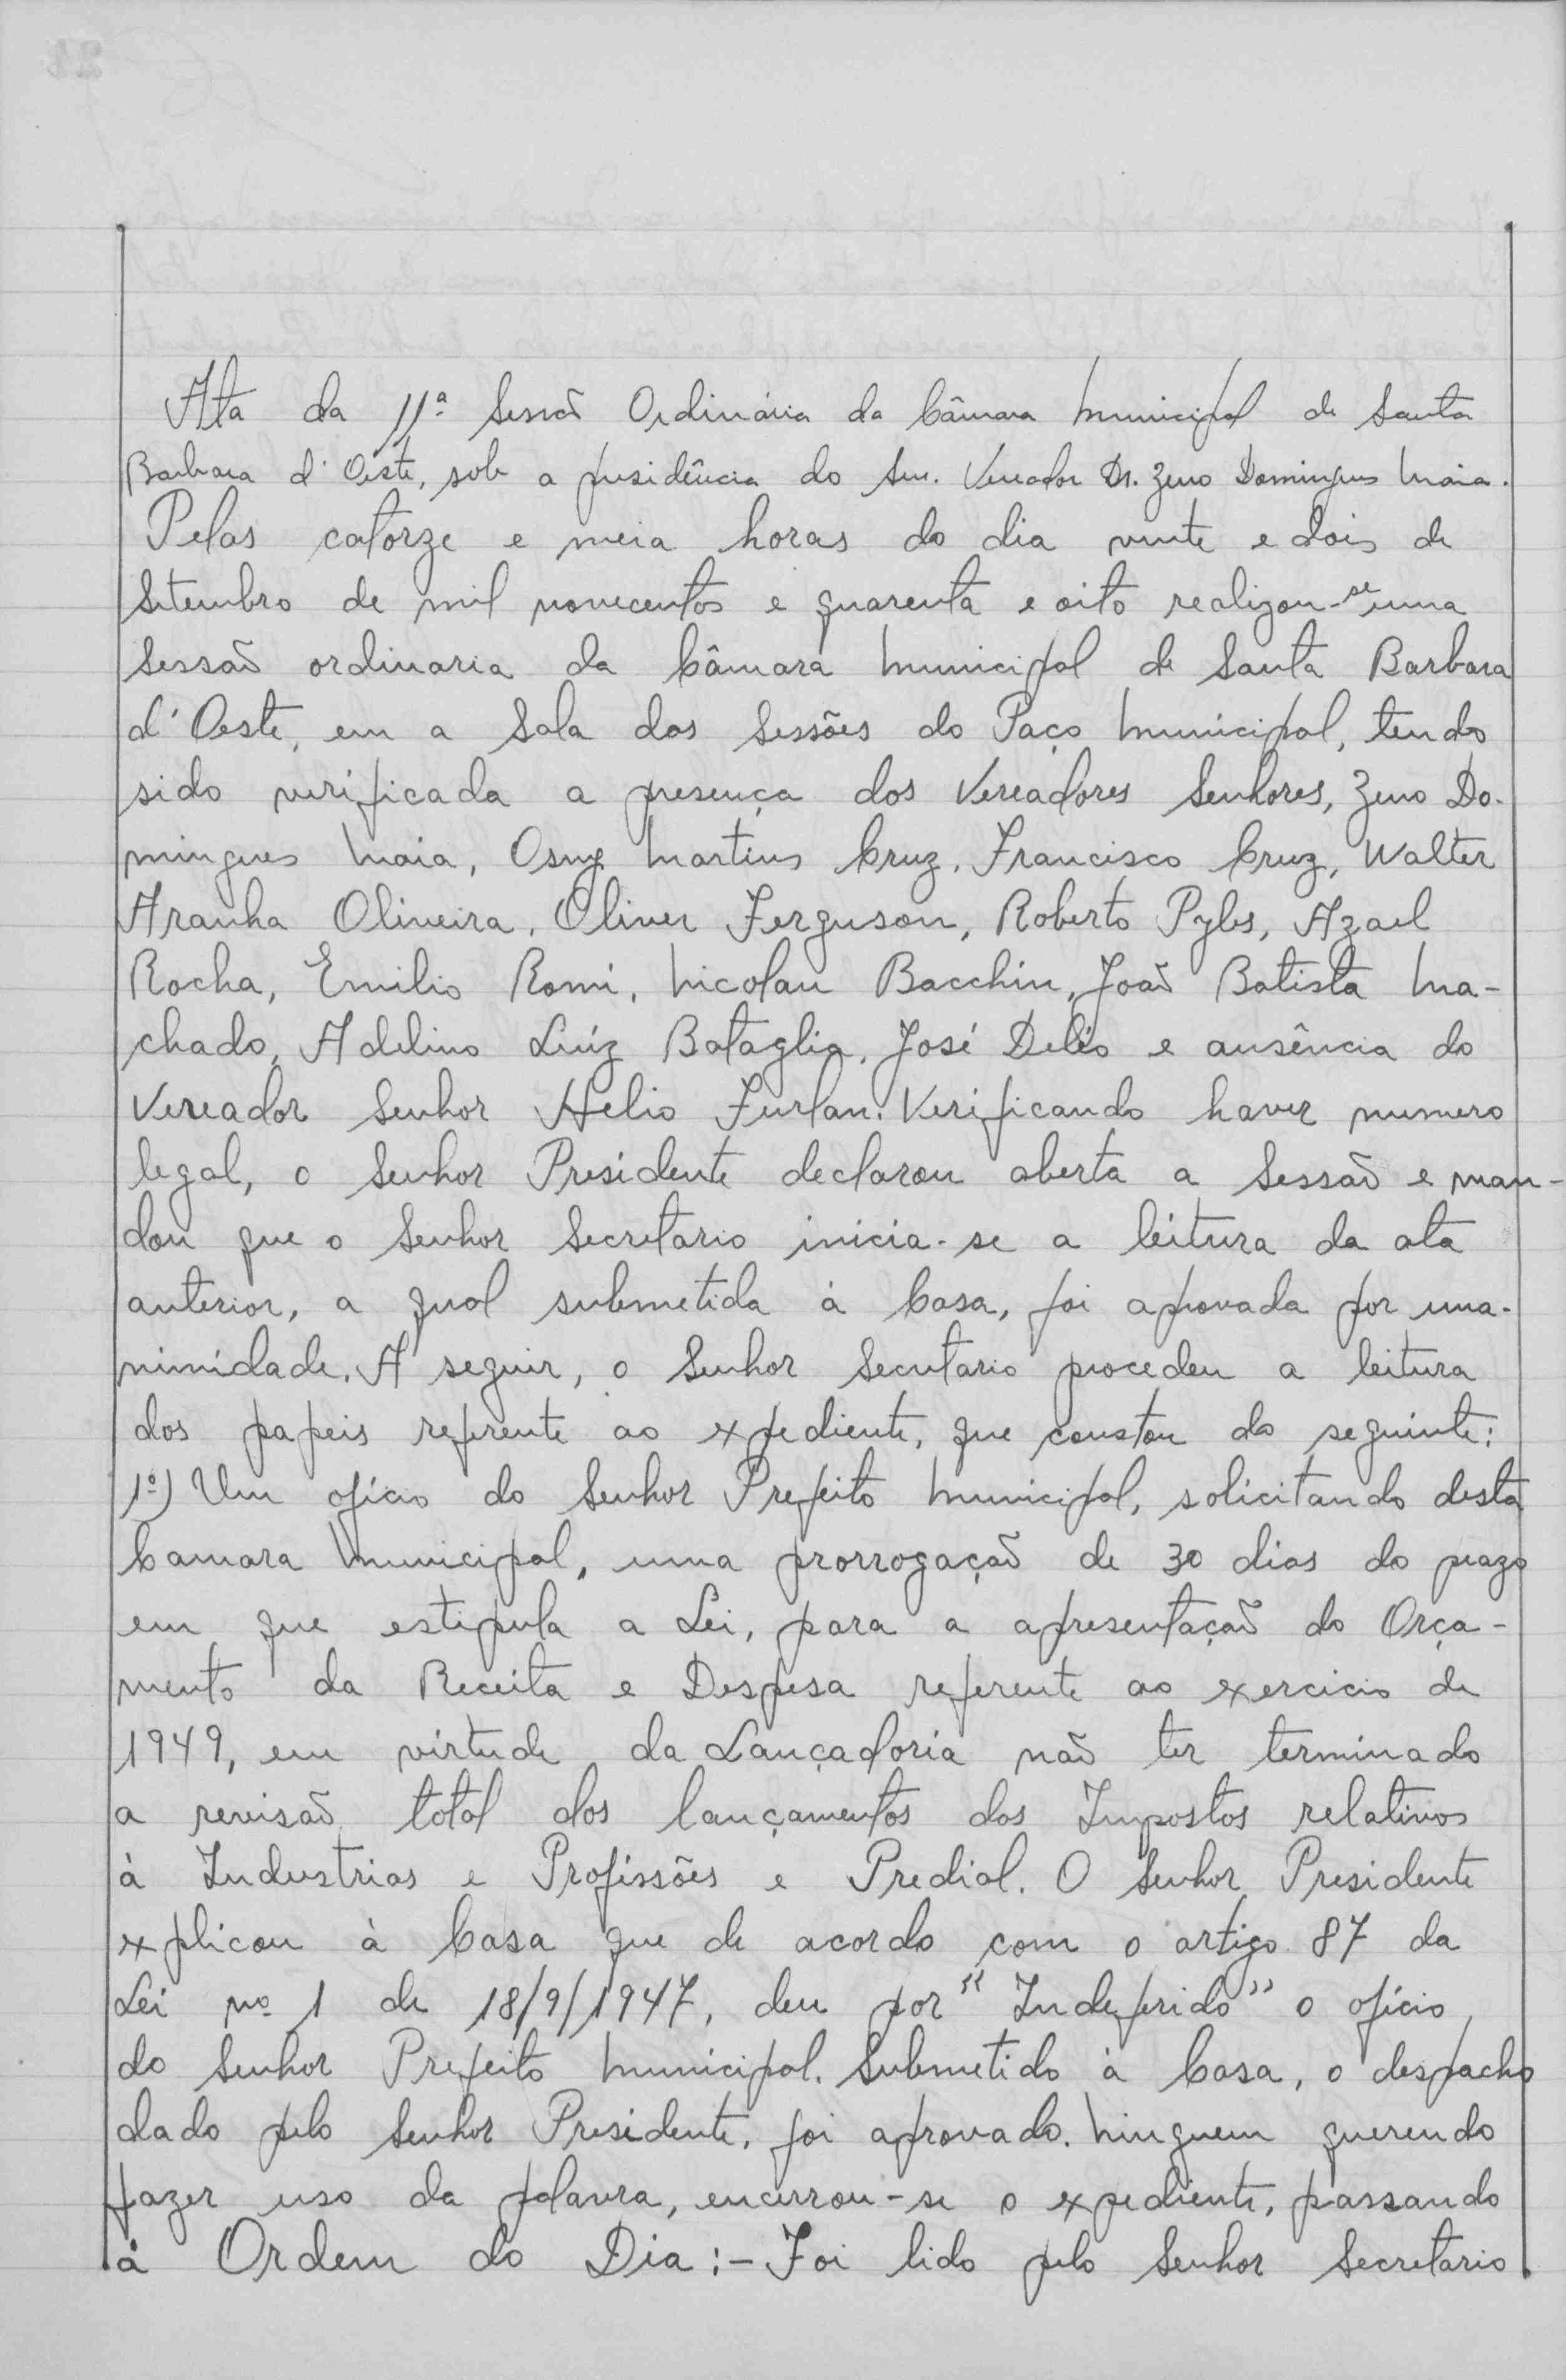 Ata da 11ª Sessão Ordinária da Câmara Municipal de Santa
Barbara d'Oeste, sob a presidência do Snr. Vereador Dr. Zeno Domingues Maia.
Pelas catorze e meia horas do dia vinte e dois de
Setembro de mil novecentos e quarenta e oito realizou-se uma
Sessão ordinaria da Câmara Municipal de Santa Barbara
d'Oeste, em a Sala das Sessões do Paço Municipal, tendo
sido verificada a presença dos Vereadores Senhores, Zeno Do-
mingues Maia, Osny Martins Cruz, Francisco Cruz, Walter
Aranha Oliveira, Oliver Ferguson, Roberto Pyles, Azael
Rocha, Emilio Romi, Nicolau Bacchin, João Batista Ma-
chado, Adelino Luíz Bataglia, José Deléo e ausência do
Vereador Senhor Helio Furlan. Verificando haver numero
legal, o Senhor Presidente declarou aberta a Sessão e man-
dou que o Senhor Secretario inicia-se a leitura da ata
anterior, a qual submetida à Casa, foi aprovada por una-
nimidade. A seguir, o Senhor Secretario procedeu a leitura
dos papeis referente ao expediente, que constou do seguinte:
1º) Um ofício do Senhor Prefeito Municipal, solicitando desta
Camara Municipal, uma prorrogação de 30 dias do prazo
em que estipula a Lei, para a apresentação do Orça-
mento da Receita e Despesa referente ao exercicio de
1949, em virtude da Lançadoria não ter terminado
a revisão total dos lançamentos dos Impostos relativos
à Industrias e Profissões e Predial. O Senhor Presidente
explicou à Casa que de acordo com o artigo 87 da
Lei nº 1 de 18/9/1947, deu por "Indeferido" o ofício
do Senhor Prefeito Municipal. Submetido à Casa, o despacho
dado pelo Senhor Presidente, foi aprovado. Ninguem querendo
fazer uso da palavra, encerrou-se o expediente, passando
à Ordem do Dia:- Foi lido pelo Senhor Secretario